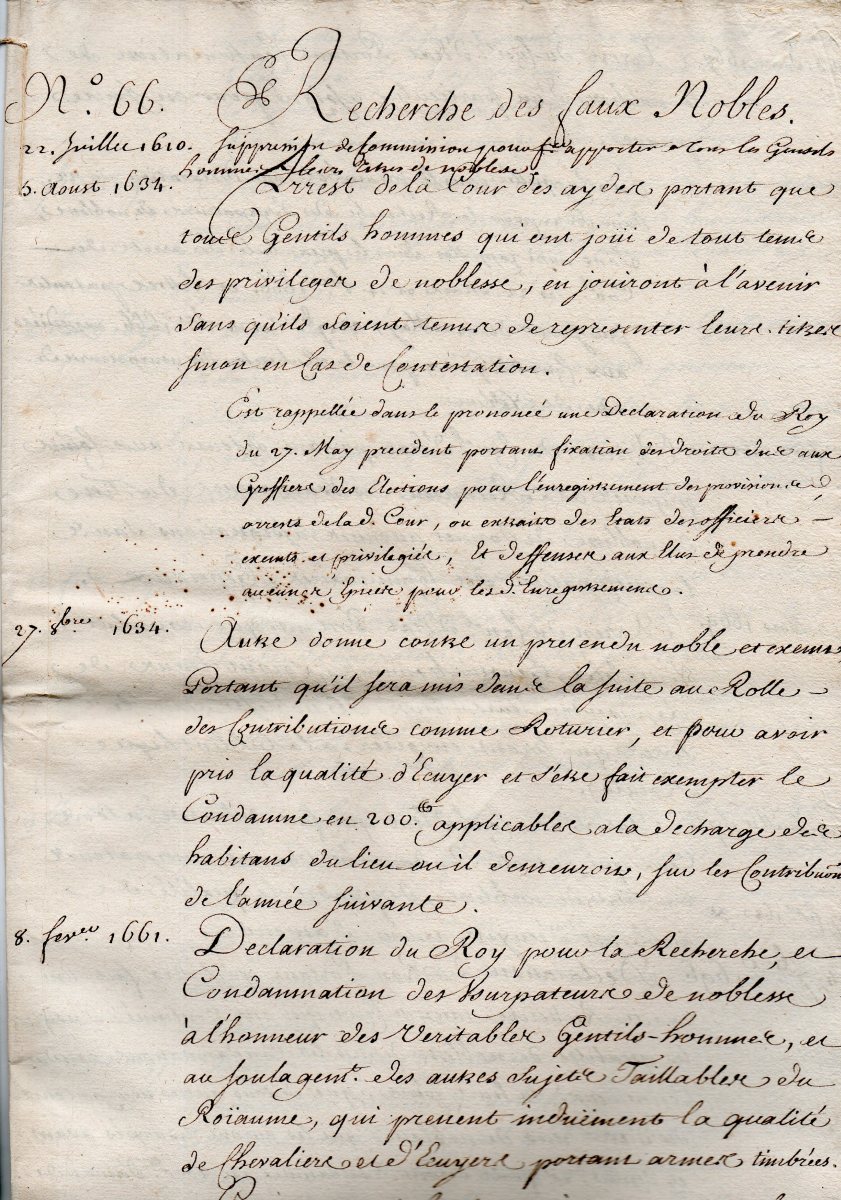 N.º 66. Recherche des faux Nobles.
22. Juillet 1610. Suppression de Commission pour fre apporter a tous les Gentils
hommes leurs titres de noblesse
5. Aoust 1634. Arrest de la Cour des aydes portant que
tous Gentils hommes qui ont joüi de tout tems
des privileges de noblesse, en jouiront à l'avenir
sans qu'ils soient tenus de representer leurs titres
sinon en Cas de Contestation.
Est rappellée dans le prononcé une Declaration du Roy
du 27. May precedent portant fixation des droits dus aux
Greffiers des Elections pour l'enregistrement des provisions d,
arrests de la d. Cour, ou extraits des Etats des officiers –
exempts et privilegiés, Et deffenses aux Elus de prendre
aucunes Epices pour les d. Enregistremens.
27. 8bre 1634. Autre donné contre un pretendu noble et exempt
Portant qu'il sera mis dans la suite au Rolle –
des Contributions comme Roturier, et pour avoir
pris la qualité d'Ecuyer et s'etre fait exempter le
Condamne en 200.tt applicables a la decharge des
habitans du lieu ou il demeuroit, sur les Contribuōn
de l'année suivante.
8. fevrer 1661. Declaration du Roy pour la Recherche, et
Condamnation des Usurpateurs de noblesse
à l'honneur des Veritables Gentils-hommes, et
au soulagent. des autres Sujets Taillables du
Roïaume, qui prenent induëment la qualité
de Chevaliers et d'Ecuyers portant armes timbrées.